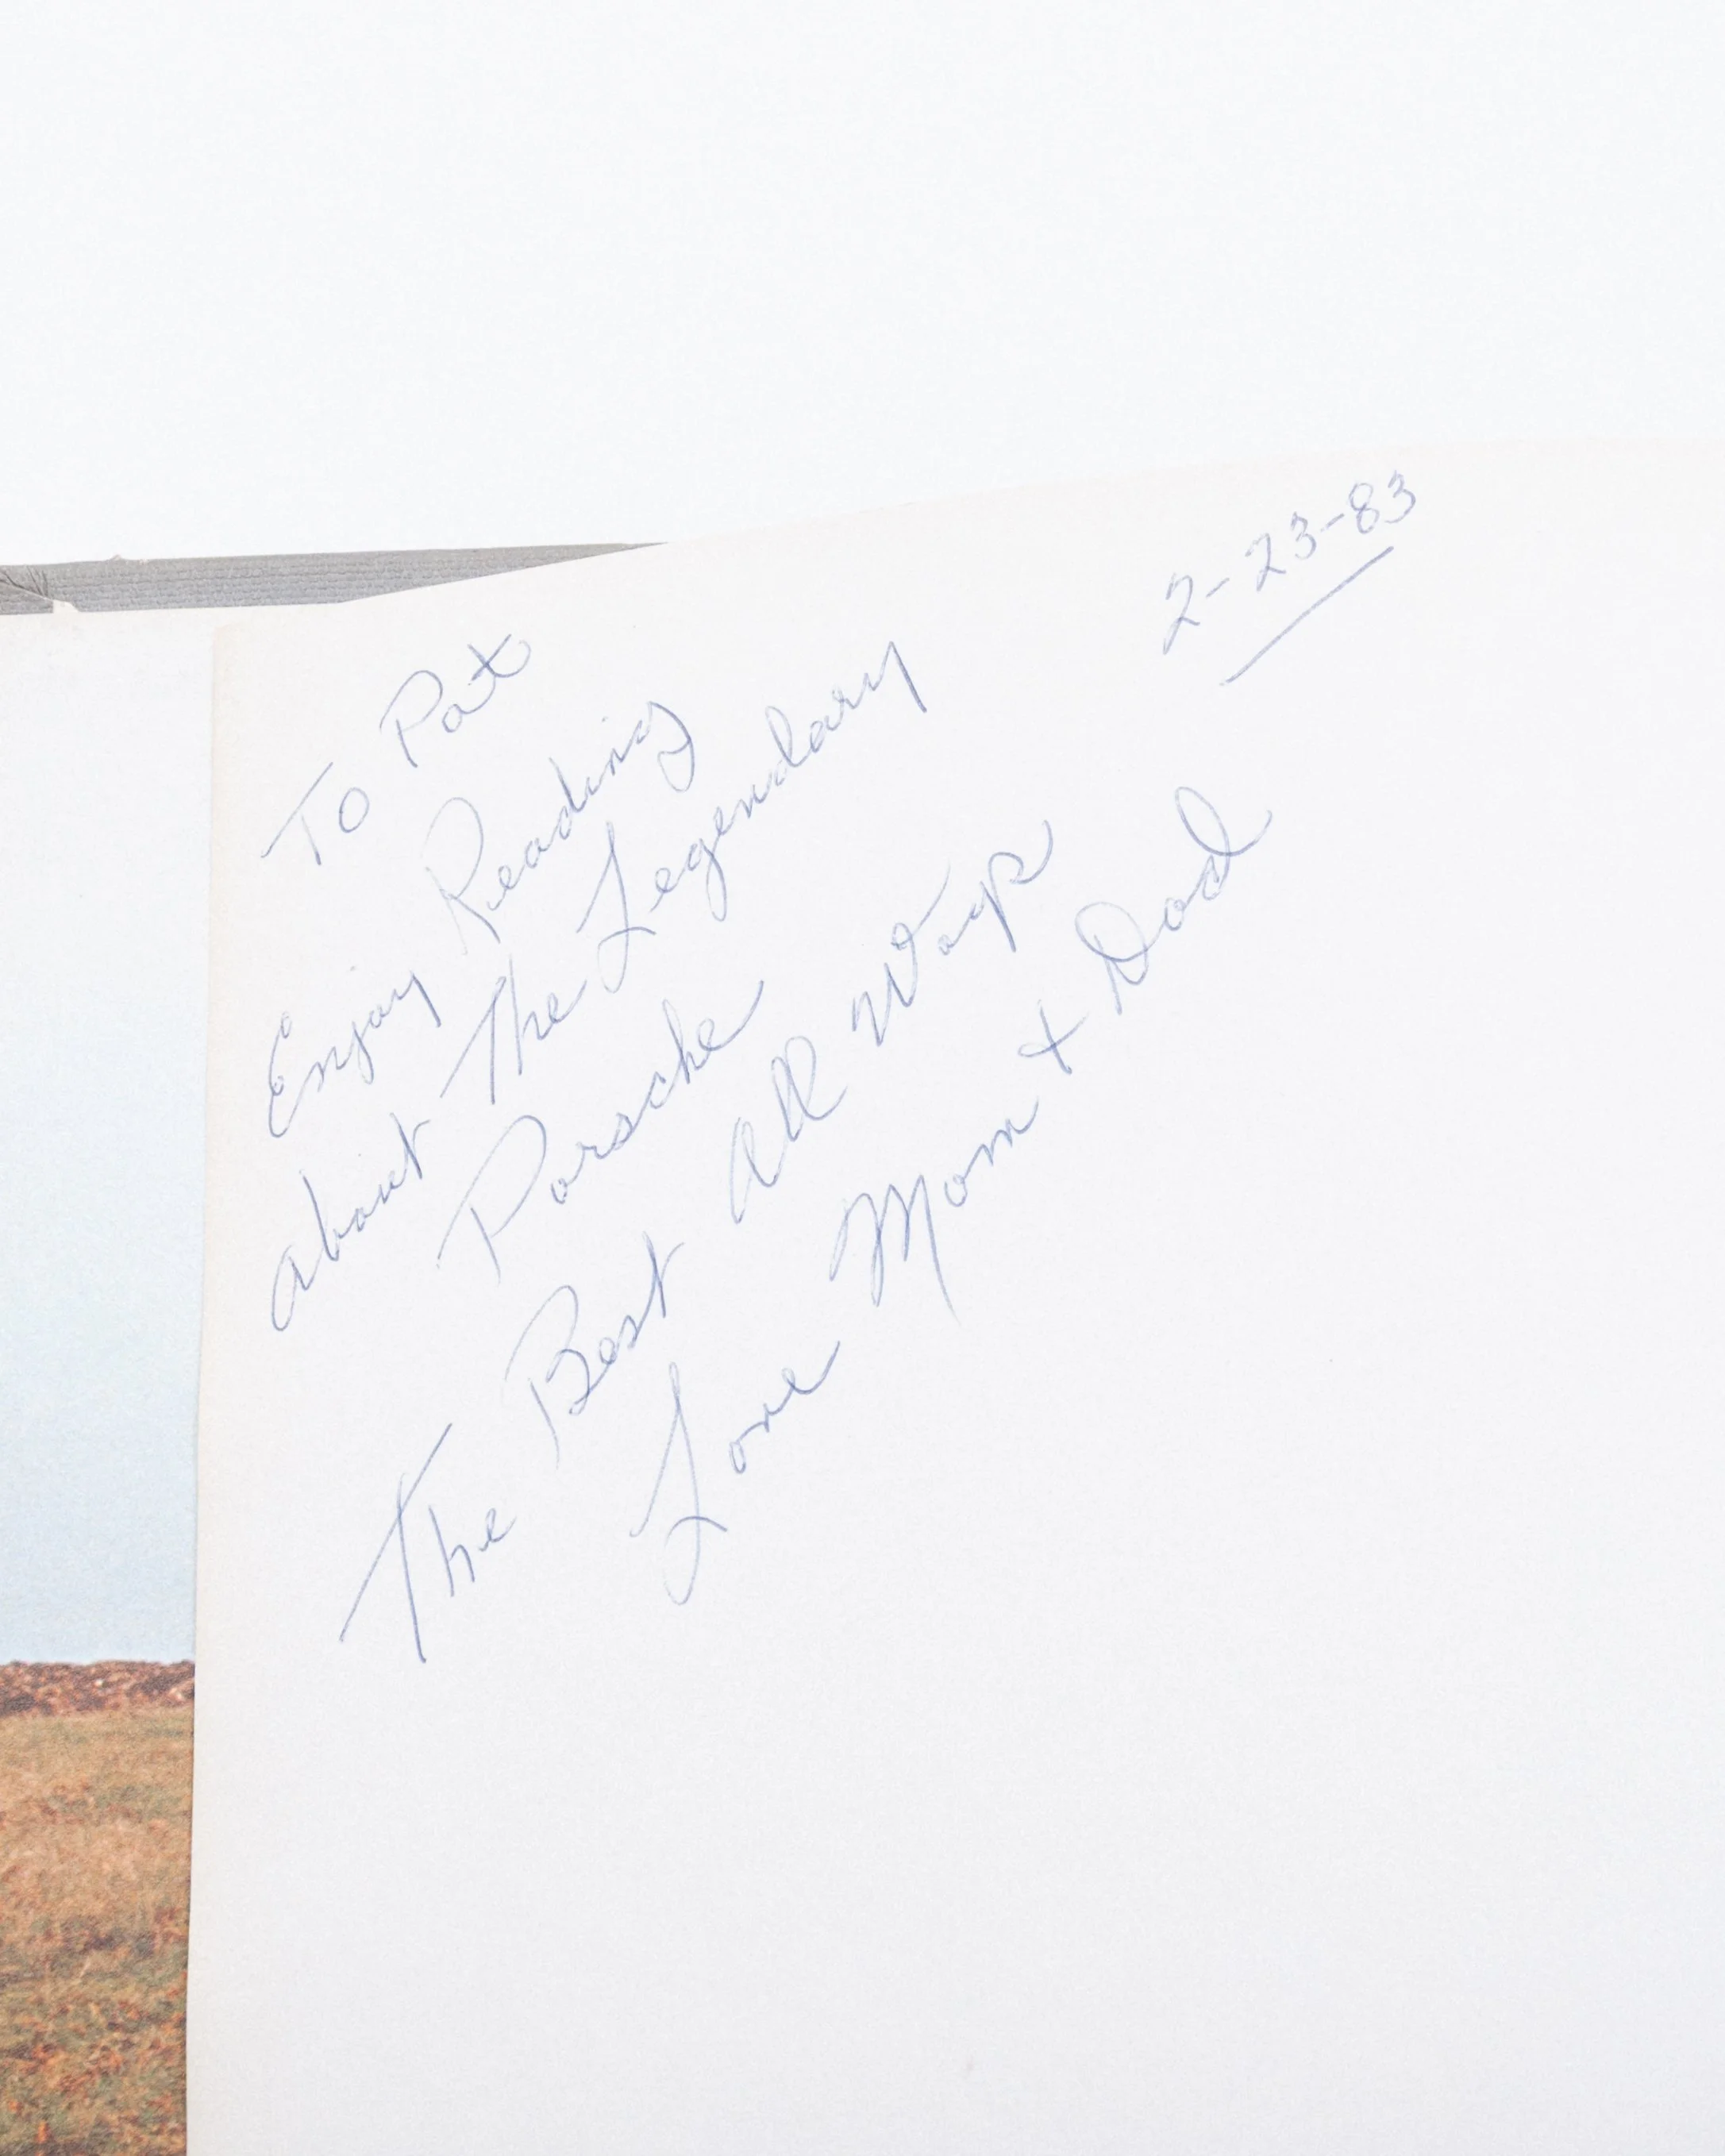 2-23-83
To Pat
Enjoy Reading
about The Legendary
Porsche
The Best All Ways
Love Mom + Dad